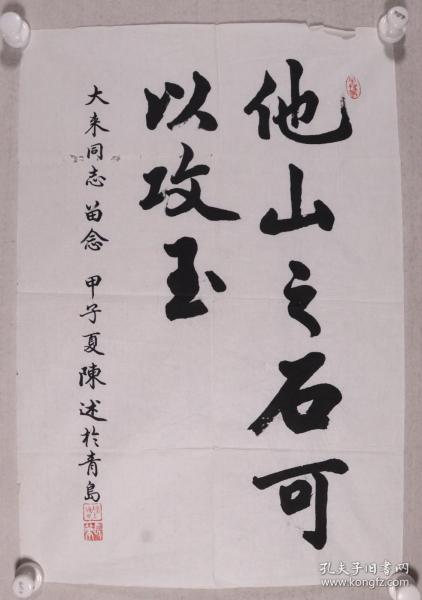 他山之石可
以攻玉
大来同志苗念 甲子夏陳述於青島
孔夫子旧书网
www.kongfz.com